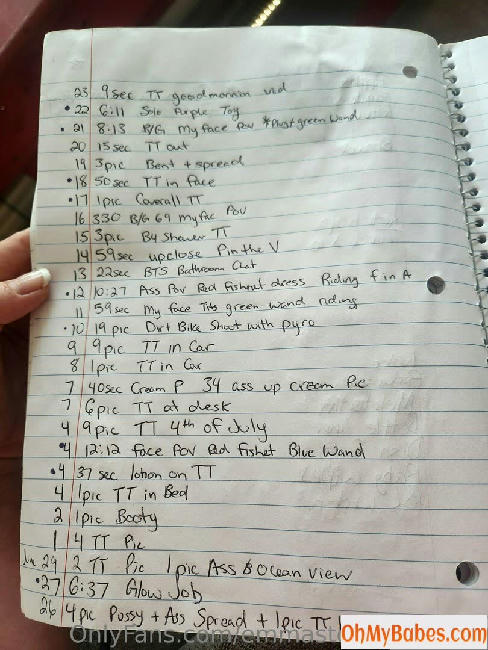 23 9sec TT goodmornin vid
• 22 6:11 Solo Purple Toy
• 21 8:13 B/G My face Pov *Phust green Wand
20 15sec TT out
19 3pic Bent + spread
• 18 50sec TT in face
• 17 1pic Coverall TT
16 330 B/G 69 my fac Pov
15 3pic B4 Shower TT
14 59sec upclose Pin the V
13 22sec BTS Bathroom Chat
• 12 10:27 Ass Pov Red Fishnet dress Riding f in A
11 59sec My face Tits green wand riding
• 10 19 pic Dirt Bike Shoot with pyro
9 9pic TT in Car
8 1pic TT in Car
7 40sec Cream P 34 ass up cream Pic
7 6pic TT at desk
4 9pic TT 4th of July
• 4 12:12 face Pov Red Fishet Blue Wand
• 4 37 sec lotion on TT
4 1pic TT in Bed
2 1pic Booty
1 4 TT Pic
29 2 TT Pic 1pic Ass & ocean view
• 27 6:37 Glow Job
26 4pic Pussy + Ass Spread + 1pic TT
OnlyFans.com/emmast
OhMyBabes.com